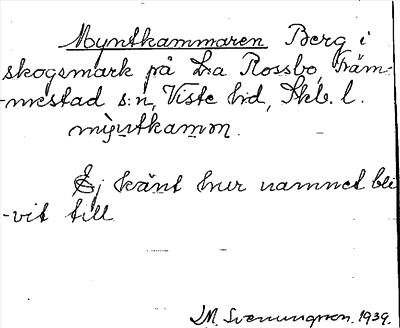 Myntkammaren Berg i
skogsmark på L:a Rossbo, Främ-
-mestad s:n, Viste hd, Skb. l.
mỳntkamm.
Ej känt hur namnet bli
-vit till
M. Svenungsson. 1939.